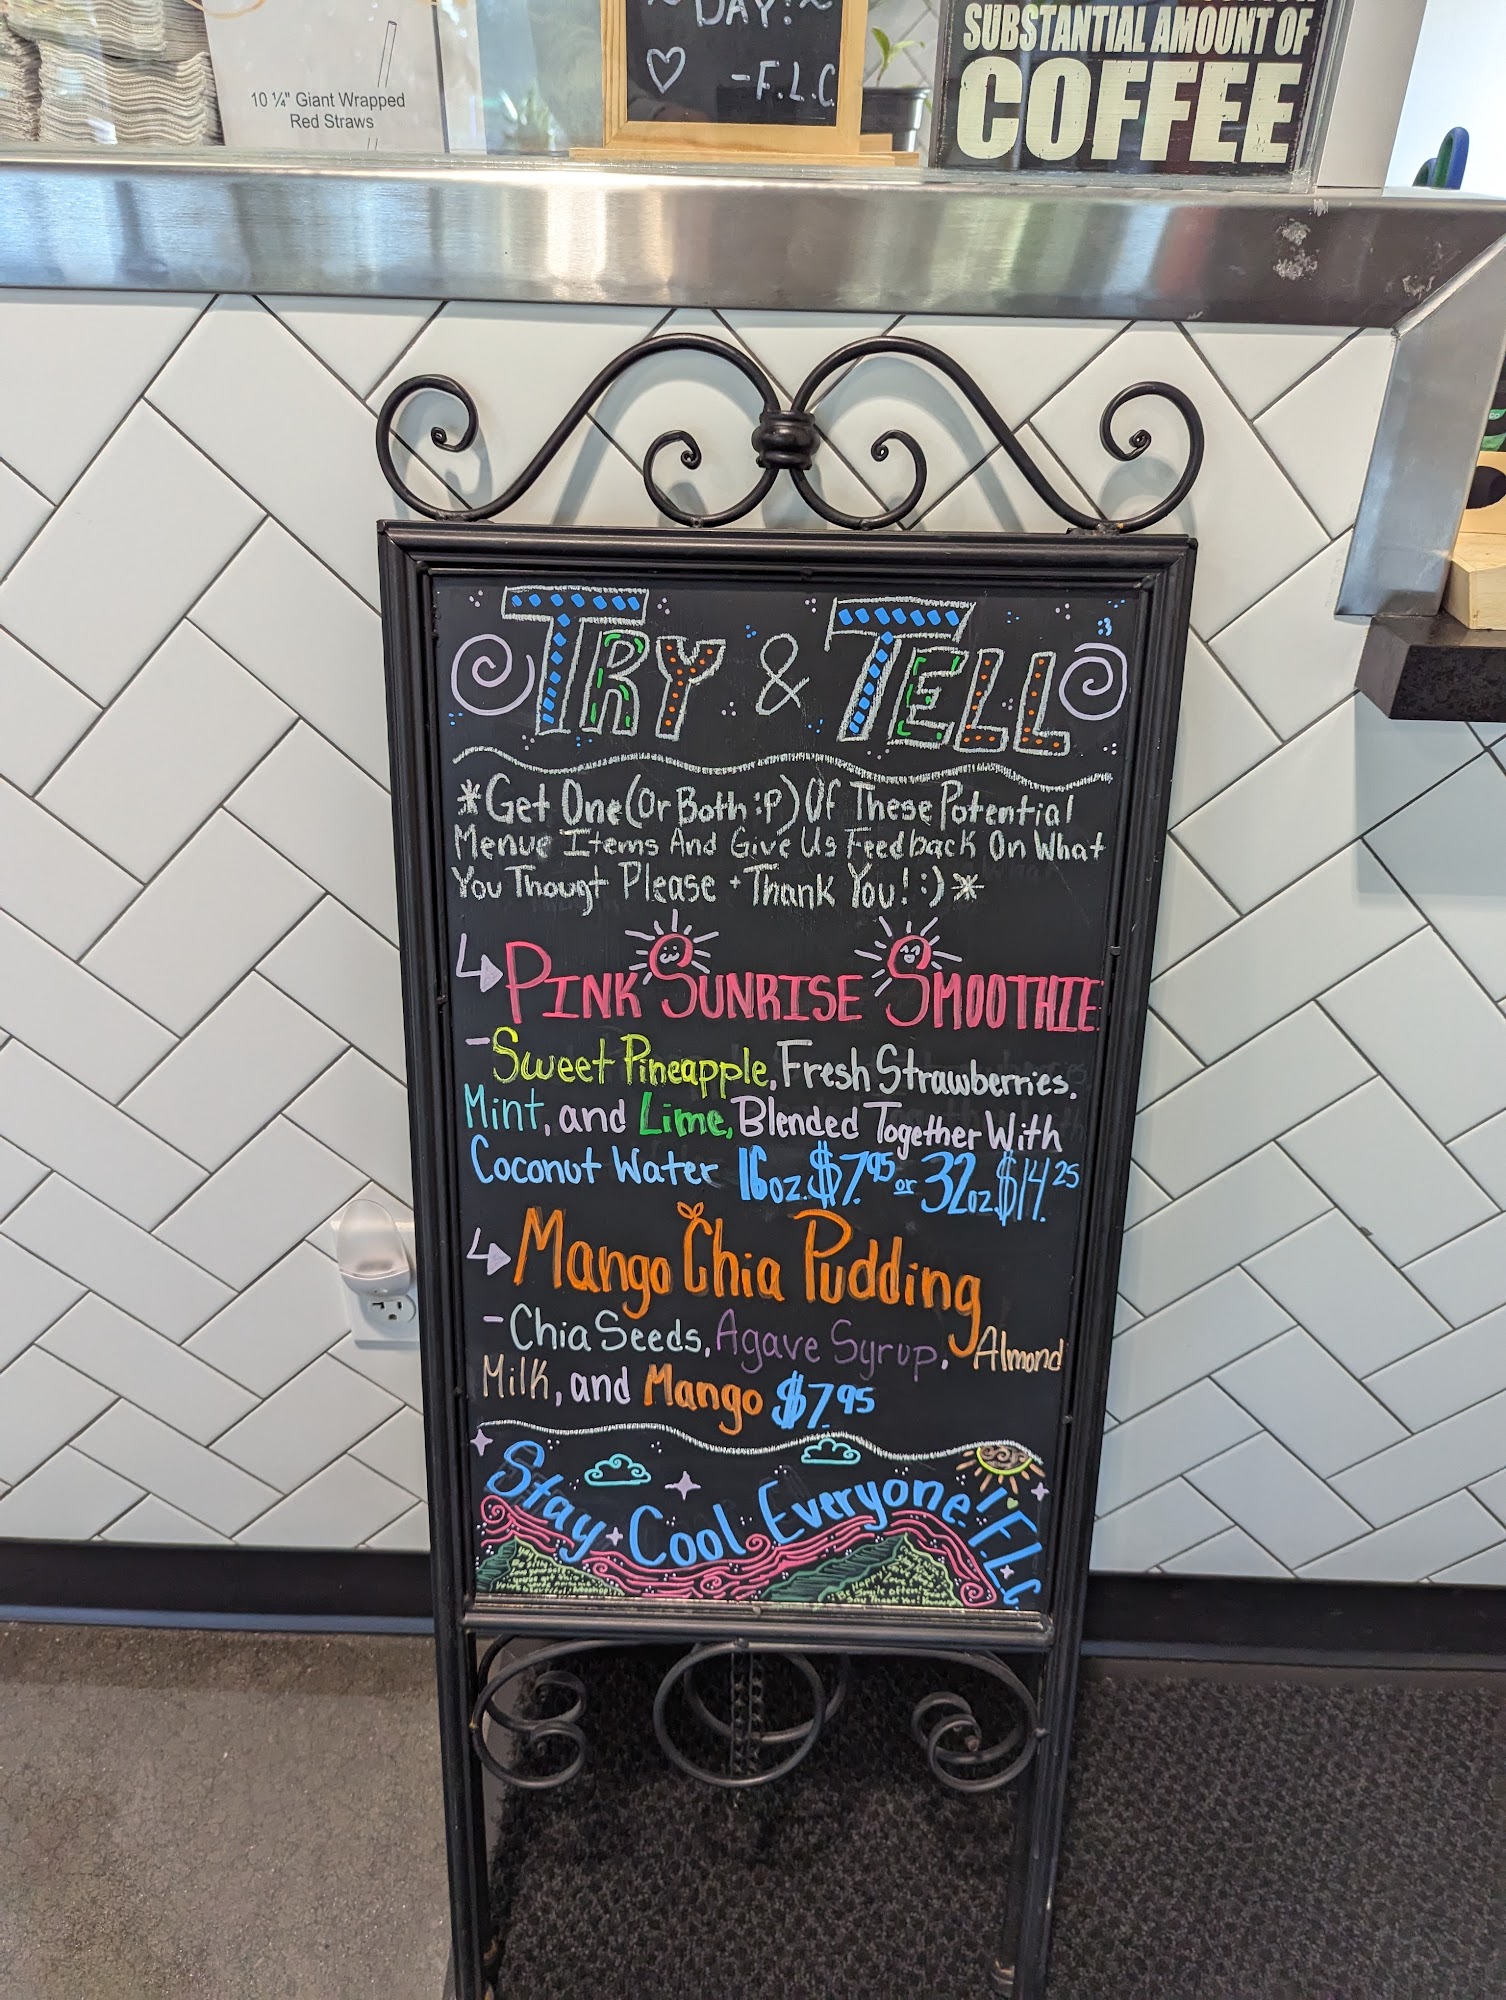 DAY! ~
-F.L.C.
10 ¼" Giant Wrapped
Red Straws
SUBSTANTIAL AMOUNT OF
COFFEE
TRY & TELL
*Get One (Or Both :P) Of These Potential
Menue Items And Give Us Feedback On What
You Thougt Please + Thank You! :) *
PINK SUNRISE SMOOTHIE
-Sweet Pineapple, Fresh Strawberries,
Mint, and Lime, Blended Together With
Coconut Water 16oz. $7.95 or 32oz. $14.25
Mango Chia Pudding
-Chia Seeds, Agave Syrup, Almond
Milk, and Mango $7.95
Stay Cool Everyone! F.L.C.